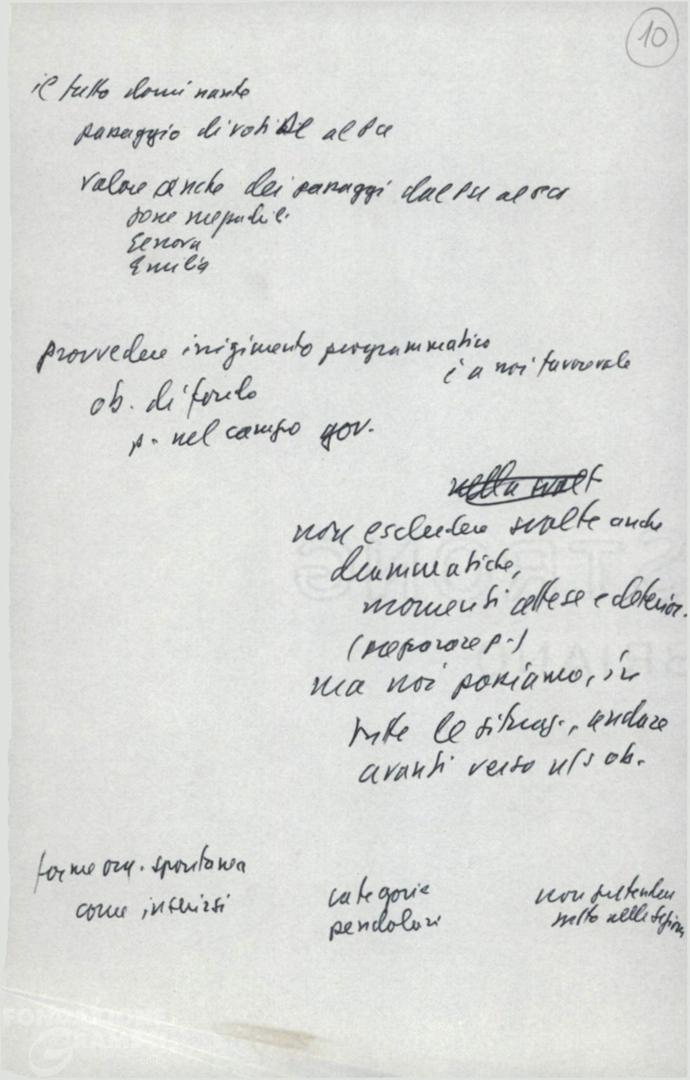 10
il fatto dominante
passaggio di voti al PCI
valore anche dei passaggi dal PCI al
zone
Genova
Emilia
Provvedere irrigimento programmatico
è a noi favorevole
ob. di fondo
p. nel campo gov.
nella svolt
non escludere svolte anche
drammatiche,
momenti attese e deterior.
(preparare p.)
ma noi possiamo, in
tutte le situaz., andare
avanti verso n/s ob.
forme org. spontanea
come inserirsi
categorie
pendolari
non
molto nelle
FONDAZIONE
GRAMSCI